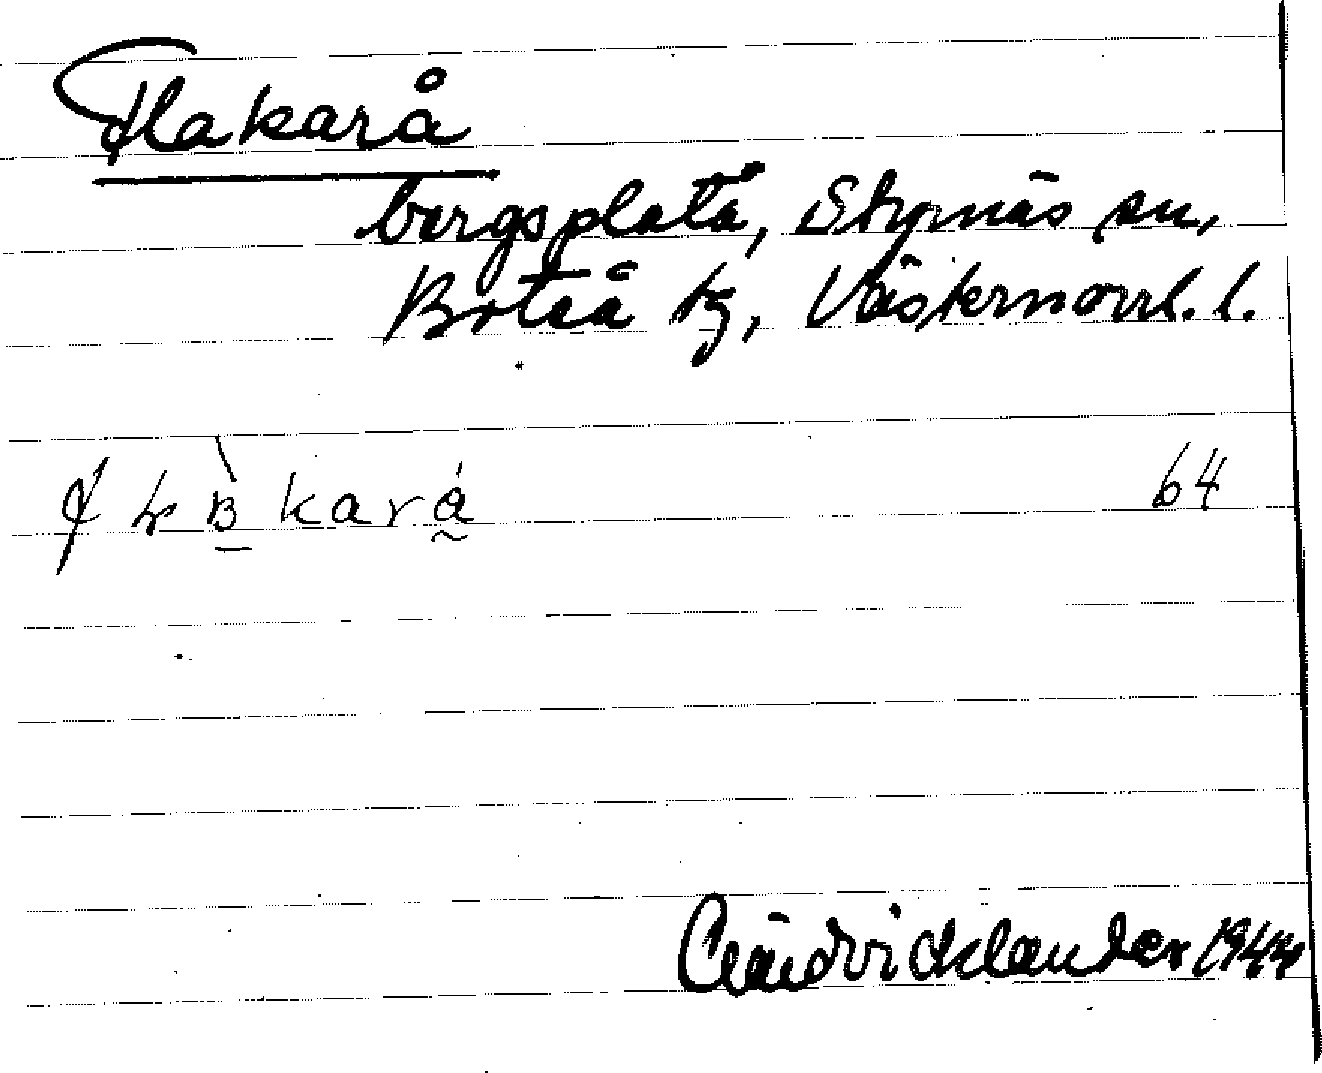 Flakarå
bergsplatå, Styrnäs sn,
Boteå tg, Västernorrl. l.
64
1944